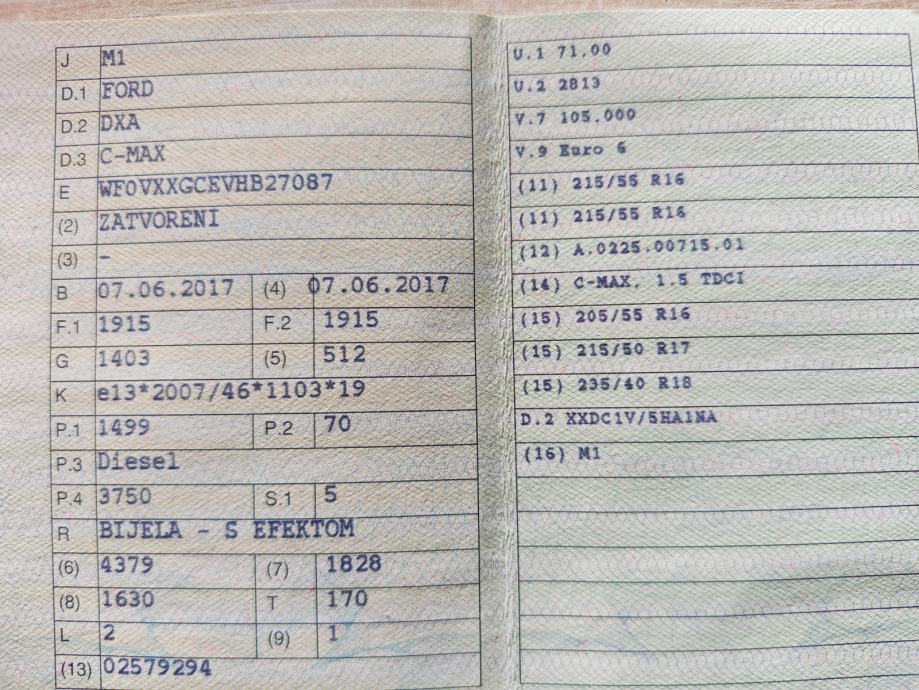 J M1
D.1 FORD
D.2 DXA
D.3 C-MAX
E WF0VXXGCEVHB27087
(2) ZATVORENI
(3) -
B 07.06.2017 (4) 07.06.2017
F.1 1915 F.2 1915
G 1403 (5) 512
K e13*2007/46*1103*19
P.1 1499 P.2 70
P.3 Diesel
P.4 3750 S.1 5
R BIJELA - S EFEKTOM
(6) 4379 (7) 1828
(8) 1630 T 170
L 2 (9) 1
(13) 02579294
U.1 71,00
U.2 2813
V.7 105,000
V.9 Euro 6
(11) 215/55 R16
(11) 215/55 R16
(12) A.0225.00715.01
(14) C-MAX, 1.5 TDCI
(15) 205/55 R16
(15) 215/50 R17
(15) 235/40 R18
D.2 XXDC1V/5HA1NA
(16) M1